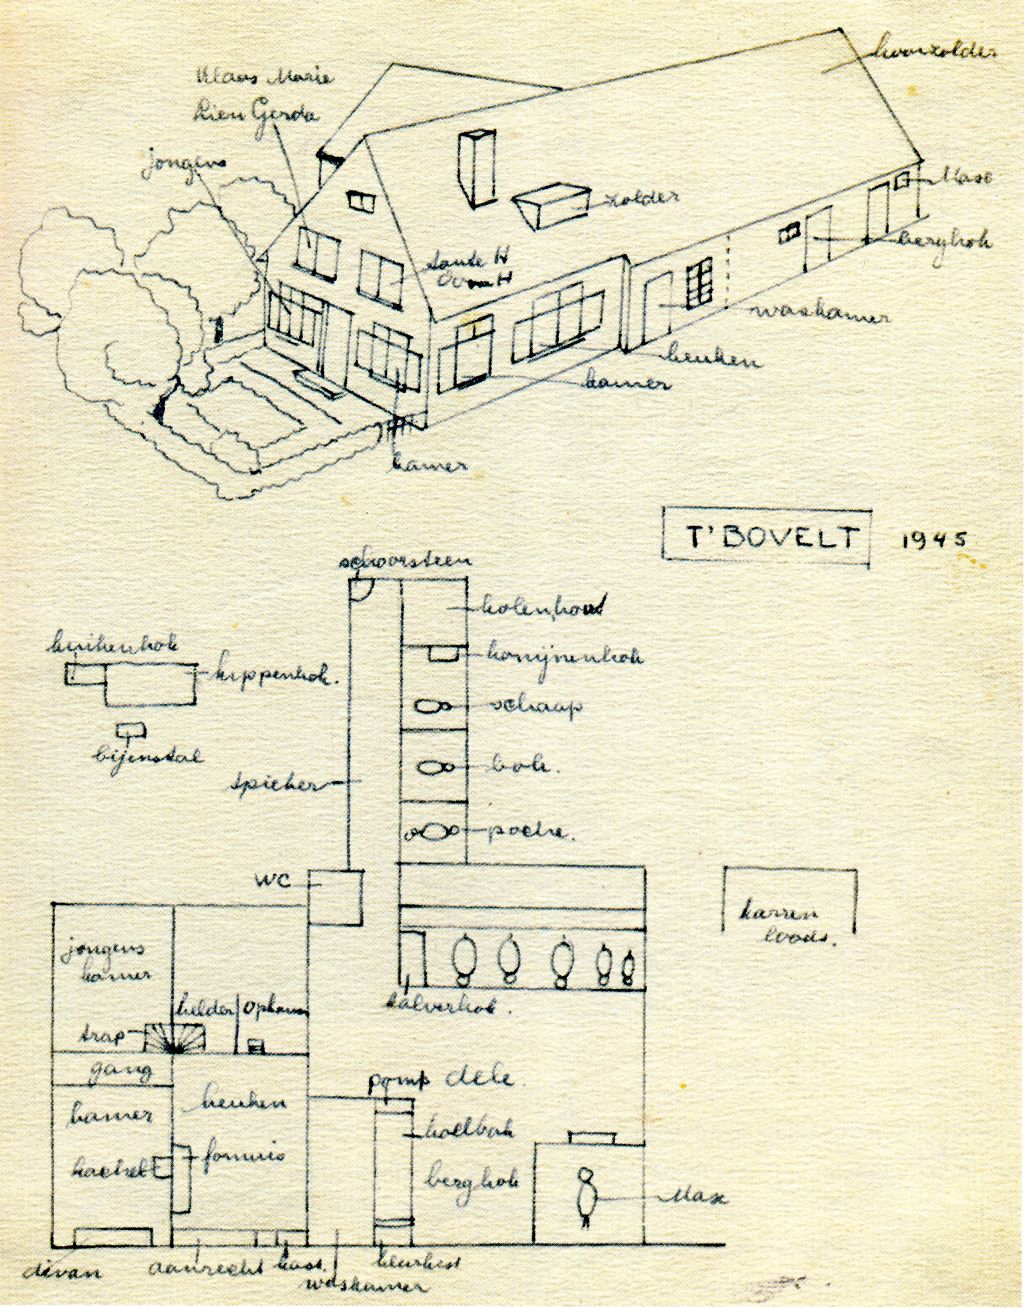 Klaas Marie
Lien Gerda
jongens
zolder
Max
berghok
tante H
waskamer
keuken
kamer
kamer
T'BOVELT 1945
schoorsteen
kolenhout
konijnenhok
kuikenhok
kippenhok.
schaap
bijenstal
bok.
spieker
WC
karren
loods.
jongens
kamer
kelder
kalverhok.
trap
gang
pomp dele.
kamer
keuken
koelbak
fornuis
kachel
berghok
Max
divan
aanrecht
kast.
waskamer